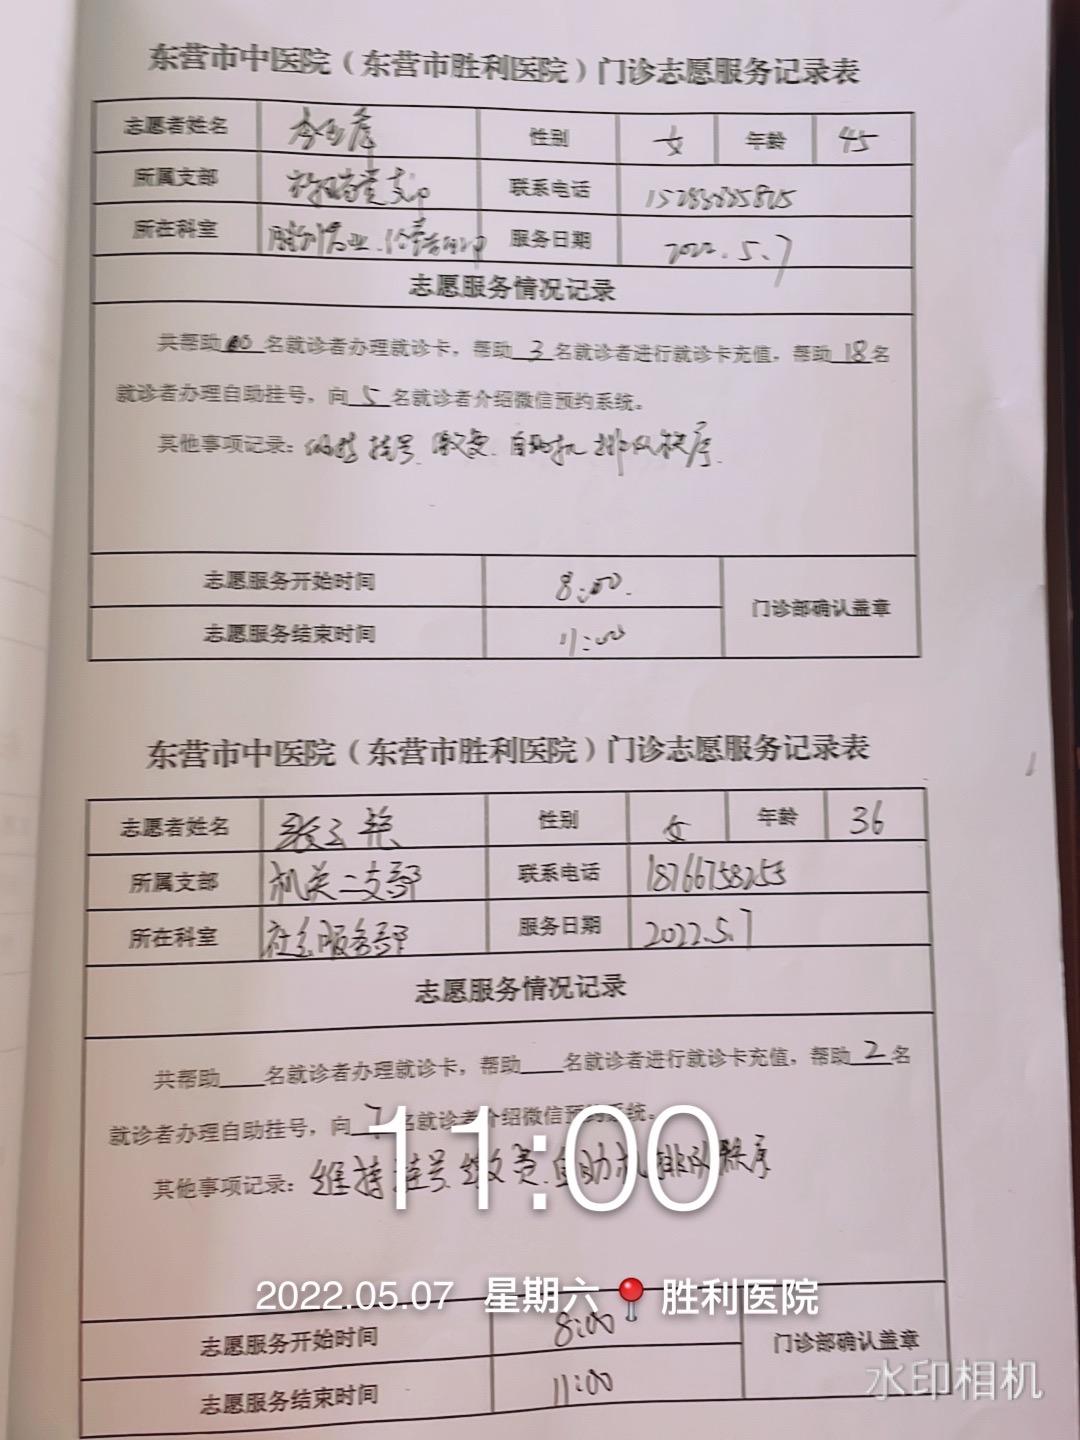 东营市中医院（东营市胜利医院）门诊志愿服务记录表
志愿者姓名 性别 女 年龄 45
所属支部 联系电话
所在科室 服务日期 2022.5.7
志愿服务情况记录
共帮助 名就诊者办理就诊卡，帮助 3 名就诊者进行就诊卡充值，帮助 18 名
就诊者办理自助挂号，向 5 名就诊者介绍微信预约系统。
其他事项记录：维持挂号、缴费、自助机排队秩序
志愿服务开始时间 8:00 门诊部确认盖章
志愿服务结束时间 11:00
东营市中医院（东营市胜利医院）门诊志愿服务记录表
志愿者姓名 性别 女 年龄 36
所属支部 机关二支部 联系电话 18766758253
所在科室 社会服务部 服务日期 2022.5.7
志愿服务情况记录
共帮助 名就诊者办理就诊卡，帮助 名就诊者进行就诊卡充值，帮助 2 名
就诊者办理自助挂号，向 7 名就诊者介绍微信预约系统。
11:00
其他事项记录：维持挂号缴费、自助机排队秩序
2022.05.07 星期六 胜利医院
志愿服务开始时间 8:00 门诊部确认盖章
志愿服务结束时间 11:00
水印相机